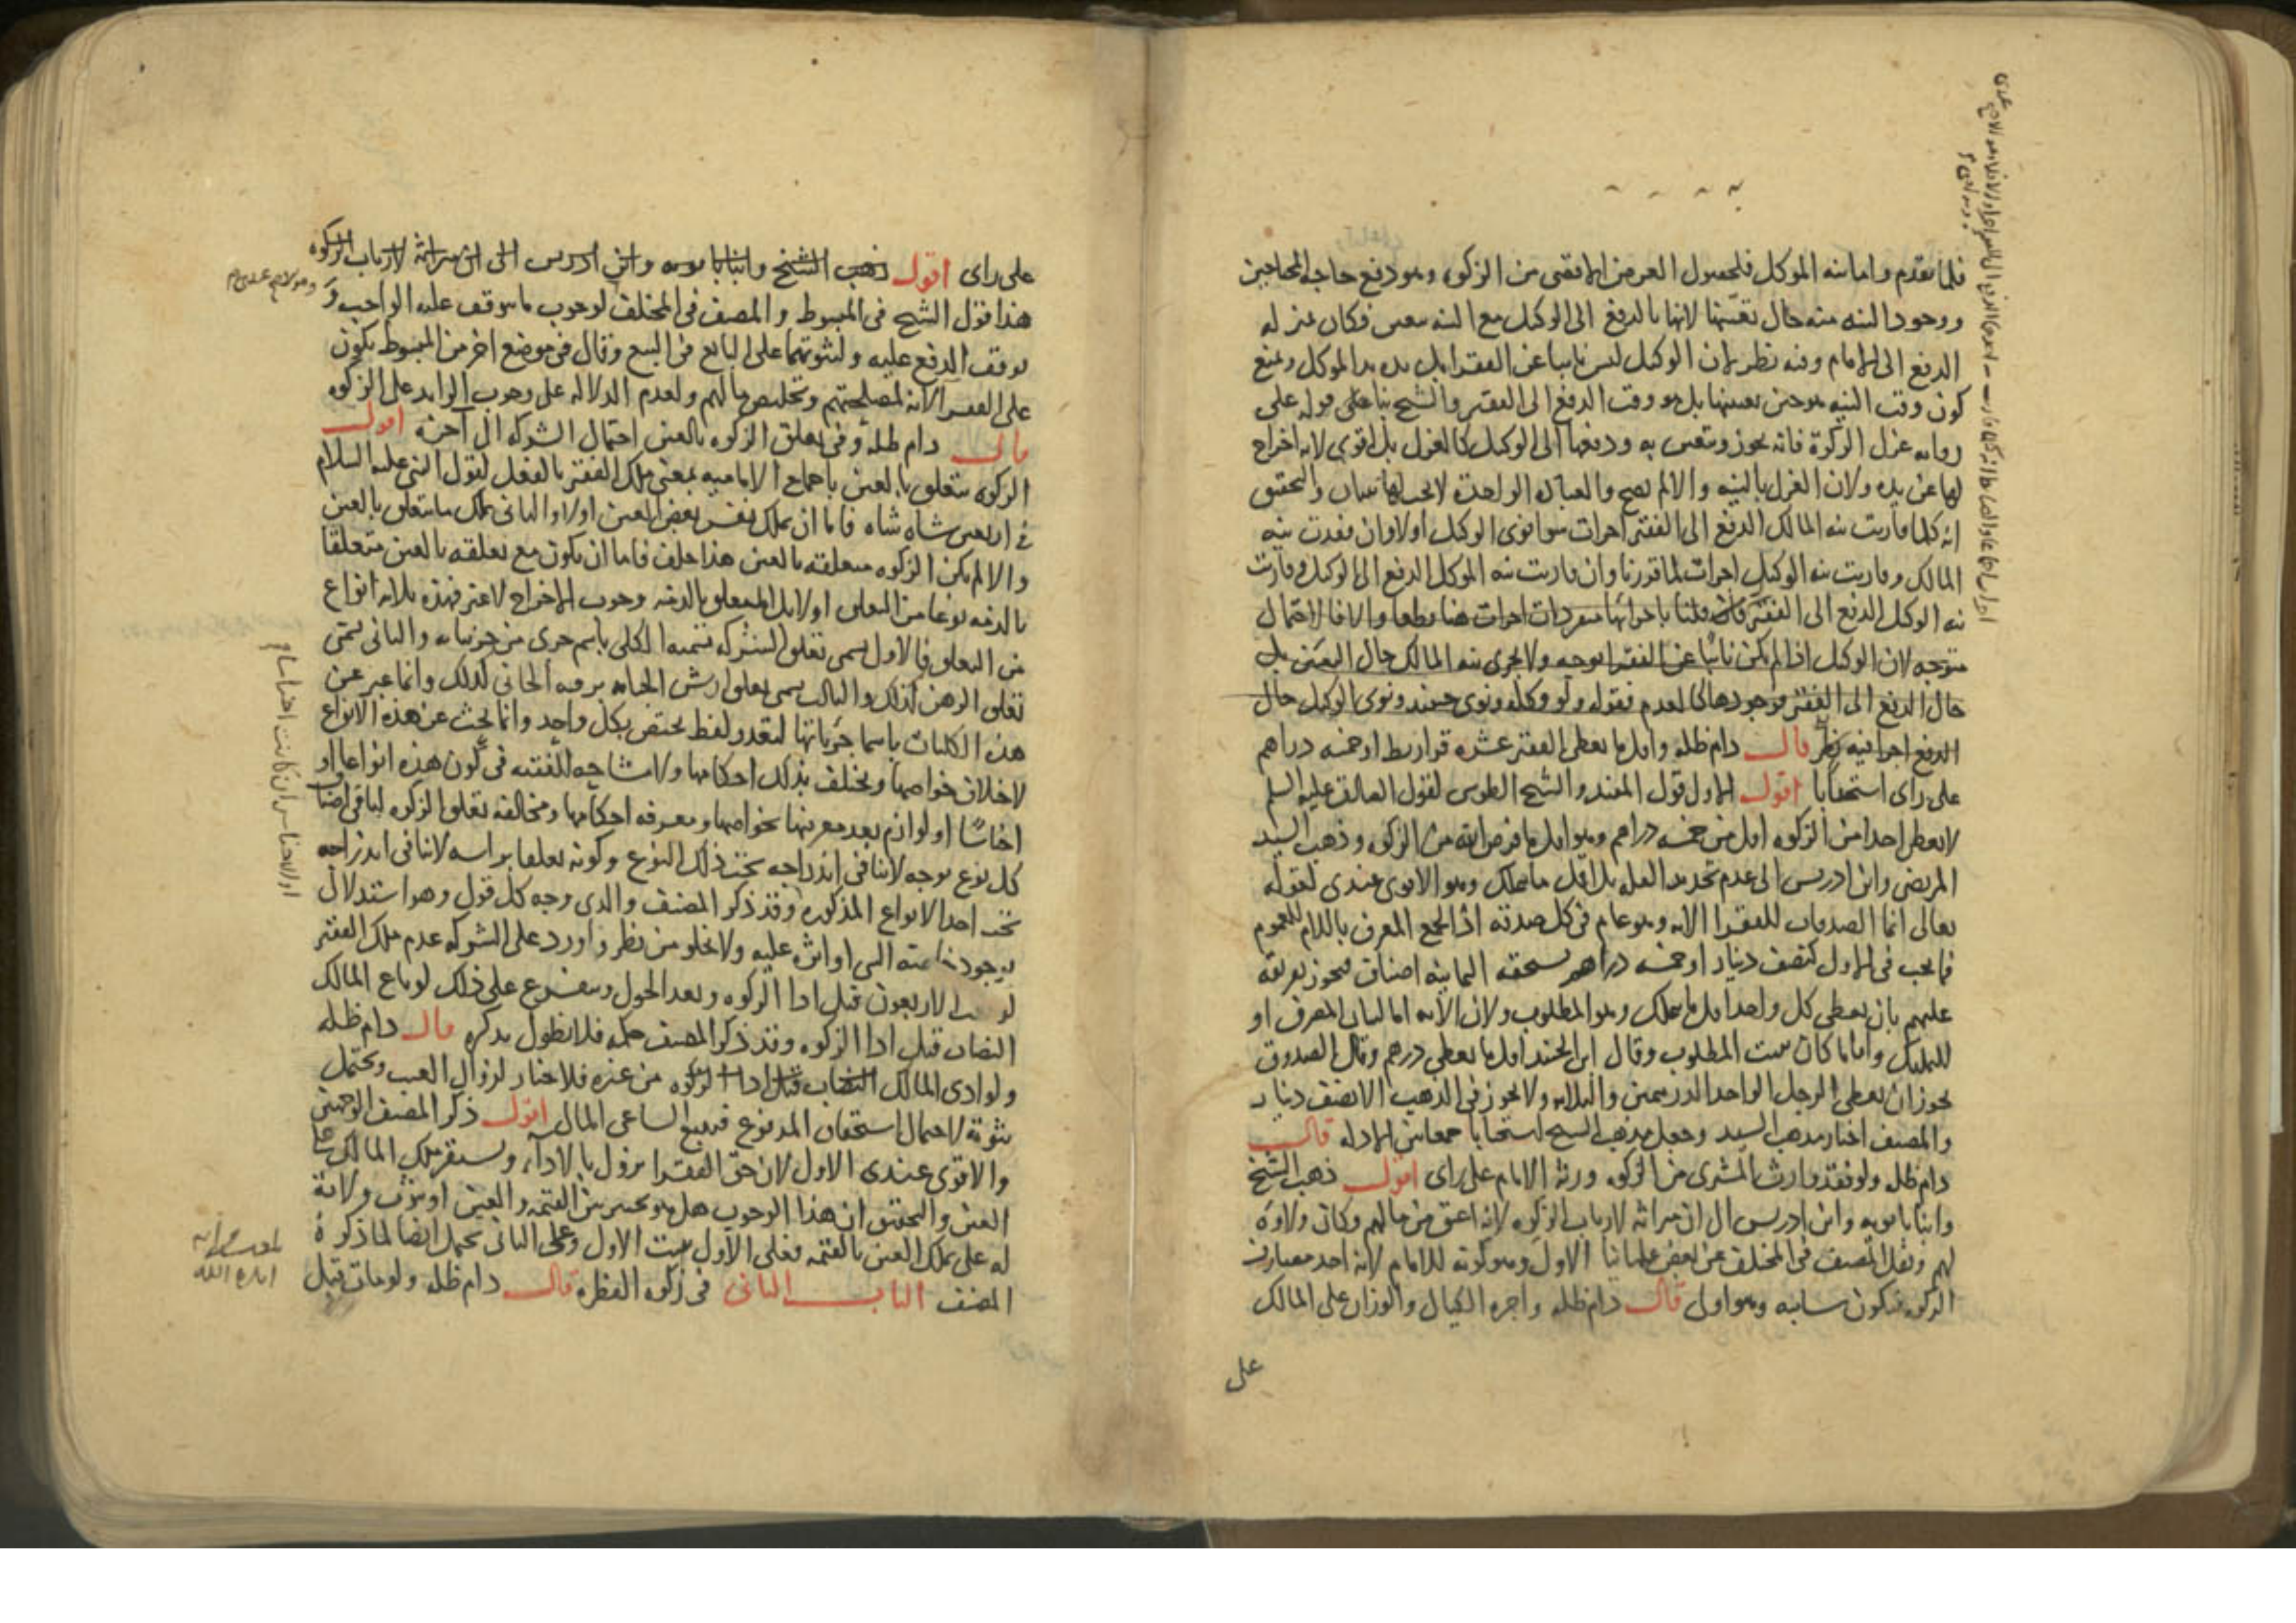 فلما تقدم واما نية الموكل فلحصول الغرض الاقصى من الزكوه وهو دفع حاجة المحاجين
ووجود النيه منه حال تعينها لانها بالدفع الى الوكيل مع النيه تتعين فكان كمنزله
الدفع الى الامام وفيه نظر لان الوكيل ليس نايبا عن الفقرا بل يده يد الموكل ونمنع
كون وقت النيه هو حين تعيينها بل هو وقت الدفع الى الفقير والشيخ بنا على قوله على
روايه عزل الزكوة فانه يجوز وتتعين به ودفعها الى الوكيل كالعزل بل اقوى لانه اخراج
لها عن يده ولان العزل بالنيه والا لم يصح والعباده الواحدة لا يجب لها نيتان والتحقيق
انه كلما قارنت نيه المالك الدفع الى الفقير اجزات سوا نوى الوكيل اولا وان فقدت نيه
المالك وقارنت نيه الوكيل اجزات لما قررنا وان قارنت نيه الموكل الدفع الى الوكيل وقارنت
نيه الوكيل الدفع الى الفقير فان قلنا باجزائها منفردات اجزات هنا قطعا والا فالاحتمال
متوجه لان الوكيل اذا لم يكن نائبا عن الفقرا بوجه ولا يجزى نيه المالك حال التعين بل
حال الدفع الى الفقير فوجودها كالعدم فقوله ولو وكله ونوى حينئذ ونوى الوكيل حال
الدفع اجزا فيه نظر قال دام ظله واقل ما يعطى الفقير عشره قواريط او خمسه دراهم
على راى استحبابا اقول الاول قول المفيد والشيخ الطوسى لقول الصادق عليه السلم
لا يعطى احدا من الزكوه اقل من خمسه دراهم وهو اقل ما فرض الله من الزكوه وذهب السيد
المرتضى وابن ادريس الى عدم تحديد القله بل اقل ما يملك وهو الاقوى عندى لقوله
تعالى انما الصدقات للفقرا الايه وهو عام فى كل صدقه اذ الجمع المعرف باللام للعموم
فما يجب فى الاول كنصف دينار او خمسه دراهم يستحقه الثمانيه اصناف فيجوز تفريقه
عليهم بان يعطى كل واحد اقل ما يملك وهو المطلوب ولان الايه اما لبيان المصرف او
للتمليك واياما كان يثبت المطلوب وقال ابن الجنيد اقل ما يعطى درهم وقال الصدوق
يجوز ان يعطى الرجل الواحد الدرهمين والثلاثه ولا يجوز فى الذهب الا نصف دينار
والمصنف اختار مذهب السيد وجعل مذهب الشيخ استحبابا جمعا بين الادله قال
دام ظله ولو فقد وارث المشترى من الزكوه ورثه الامام على راى اقول ذهب الشيخ
وابنا بابويه وابن ادريس الى ان ميراثه لارباب الزكوه لانه اعتق من مالهم وكان ولاوه
لهم ونقل المصنف فى المختلف عن بعض علمائنا الاول وهو كونه للامام لانه احد مصارف
الزكوه فيكون سايبه وهو اولى قال دام ظله واجره الكيال والوزان على المالك
على
على راى اقول ذهب الشيخ وابنا بابويه وابن ادريس الى ان ميراثه لارباب الزكوه
هذا قول الشيخ فى المبسوط والمصنف فى المختلف لوجوب ما يتوقف عليه الواجب و
توقف الدفع عليه ولثبوتهما على البايع فى البيع وقال فى موضع اخر من المبسوط يكون
على الفقرا لانه لمصلحتهم وتخليص مالهم ولعدم الدلاله على وجوب الزايد على الزكوه
قال دام ظله وفى تعلق الزكوه بالعين احتمال الشركه الى آخره اقول
الزكوه تتعلق بالعين باجماع الاماميه بمعنى ملك الفقير بالفعل لقول النبى عليه السلام
فى اربعين شاه شاه فاما ان يملك نفس بعض العين اولا والثانى يملك ما يتعلق بالعين
والا لم يكن الزكوه متعلقه بالعين هذا خلف فاما ان يكون مع تعلقه بالعين متعلقا
بالذمه نوعا من التعلق اولا بل المتعلق بالذمه وجوب الاخراج لا غير فهذه ثلاثه انواع
من التعلق فالاول يسمى تعلق الشركه تسميه الكلى باسم جزى من جزئياته والثانى يسمى
تعلق الرهن كذلك والثالث يسمى تعلق ارش الجنايه برقبه الجانى كذلك وانما عبر عن
هذه الكليات باسما جزئياتها لتعذر لفظ يختص بكل واحد وانما يحث عن هذه الانواع
لاختلاف خواصها ويختلف بذلك احكامها ولا مشاحه للفقيه فى كون هذه انواعا او
اجناسا او لوازم بعد معرفتها بخواصها ومعرفه احكامها ومخالفه تعلق الزكوه لباقى اصناف
كل نوع بوجه لا ينافى اندراجه تحت ذلك النوع وكونه تعلقا براسه لا ينافى اندراجه
تحت احد الانواع المذكوره وقد ذكر المصنف والدى وجه كل قول وهو استدلال
بوجود خاصته التى او اثره عليه ولا يخلو من نظر واورد على الشركه عدم ملك الفقير
الاربعون قبل ادا الزكوه وبعد الحول ويتفرع على ذلك لو باع المالك
النصاب قبل ادا الزكوه وقد ذكر المصنف حكمه فلا نطول بذكره قال دام ظله
ولو ادى المالك النصاب قبل ادا الزكوه من غيره فلا خيار لزوال العيب ويحتمل
ثبوته لاحتمال استحقاق المدفوع فيتبع الساعى المال اقول ذكر المصنف الوجهين
والاقوى عندى الاول لان حق الفقرا يزول بالادآء ويستقر ملك المالك على
العين والتحقيق ان هذا الوجوب هل هو تخيير بين القيمه والعين او يتوقف ولايه
له على تملك العين بالقيمه فعلى الاول يثبت الاول وعلى الثانى يحتمل ايضا لما ذكره
المصنف الباب الثانى فى زكوه الفطره قال دام ظله ولو مات قبل
وهو الاصح عندى م